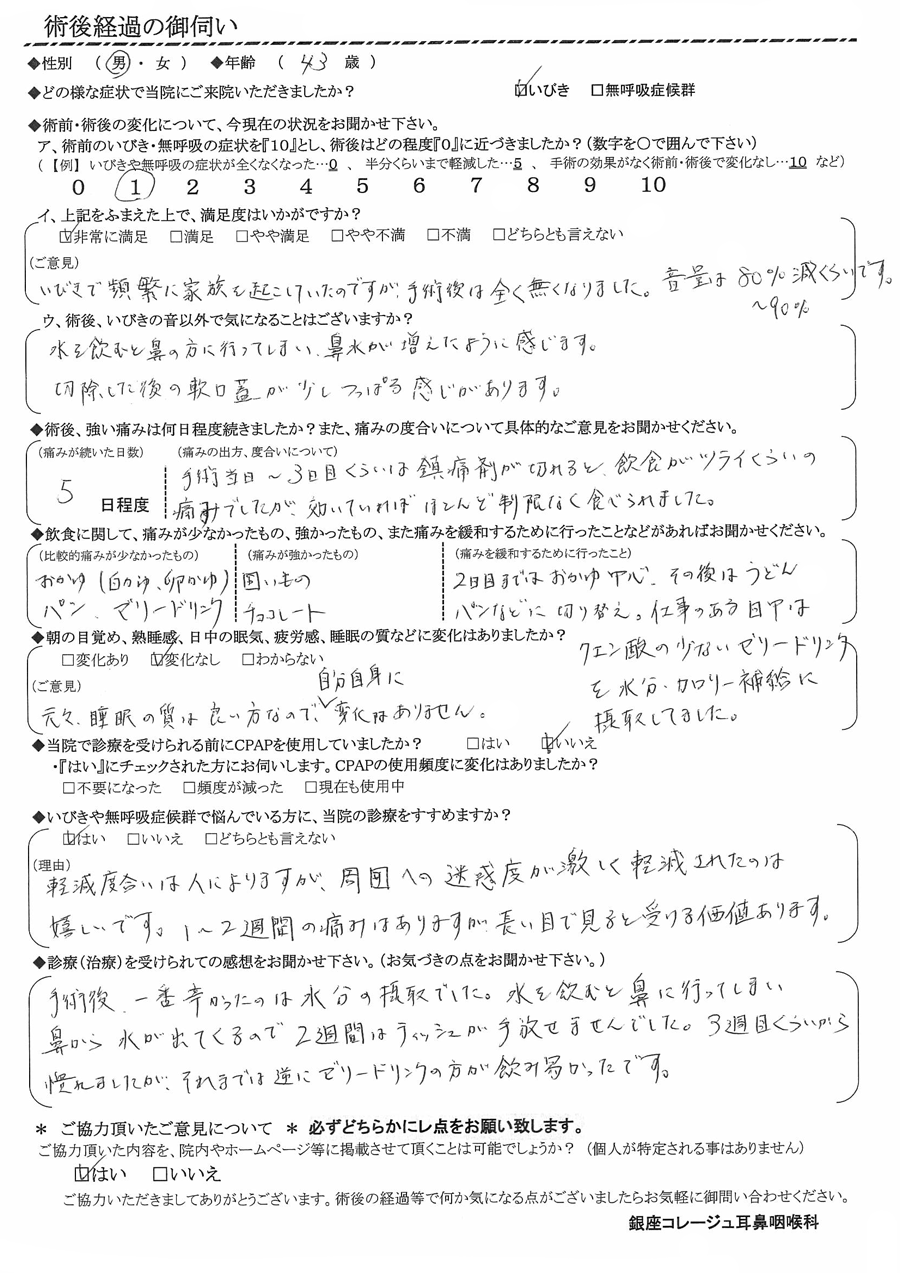 術後経過の御伺い
◆性別 （ 男 ・ 女 ） ◆年齢 （ 43 歳 ）
◆どの様な症状で当院にご来院いただきましたか？ ☑いびき □無呼吸症候群
◆術前・術後の変化について、今現在の状況をお聞かせ下さい。
ア、術前のいびき・無呼吸の症状を『10』とし、術後はどの程度『0』に近づきましたか？（数字を〇で囲んで下さい）
（【例】 いびきや無呼吸の症状が全くなくなった…0 、 半分くらいまで軽減した…5 、 手術の効果がなく術前・術後で変化なし…10 など）
0 1 2 3 4 5 6 7 8 9 10
イ、上記をふまえた上で、満足度はいかがですか？
☑非常に満足 □満足 □やや満足 □やや不満 □不満 □どちらとも言えない
（ご意見）
いびきで頻繁に家族を起こしていたのですが、手術後は全く無くなりました。音量は80%減くらいです。
～90%
ウ、術後、いびきの音以外で気になることはございますか？
水を飲むと鼻の方に行ってしまい、鼻水が増えたように感じます。
切除した後の軟口蓋が少しつっぱる感じがあります。
◆術後、強い痛みは何日程度続きましたか？また、痛みの度合いについて具体的なご意見をお聞かせください。
（痛みが続いた日数） （痛みの出方、度合いについて）
手術当日～3日目くらいは鎮痛剤が切れると、飲食がツライくらいの
5 日程度 痛みでしたが、効いていればほとんど制限なく食べられました。
◆飲食に関して、痛みが少なかったもの、強かったもの、また痛みを緩和するために行ったことなどがあればお聞かせください。
（比較的痛みが少なかったもの） （痛みが強かったもの） （痛みを緩和するために行ったこと）
おかゆ（白かゆ、卵かゆ） 固いもの 2日目まではおかゆ中心、その後はうどん
パン、ゼリードリンク チョコレート パンなどに切り替え。仕事のある日中は
クエン酸の少ないゼリードリンク
を水分・カロリー補給に
摂取してました。
◆朝の目覚め、熟睡感、日中の眠気、疲労感、睡眠の質などに変化はありましたか？
□変化あり ☑変化なし □わからない
（ご意見） 自分自身に
元々、睡眠の質は良い方なので、変化はありません。
◆当院で診療を受けられる前にCPAPを使用していましたか？ □はい ☑いいえ
・『はい』にチェックされた方にお伺いします。CPAPの使用頻度に変化はありましたか？
□不要になった □頻度が減った □現在も使用中
◆いびきや無呼吸症候群で悩んでいる方に、当院の診療をすすめますか？
☑はい □いいえ □どちらとも言えない
（理由）
軽減度合いは人によりますが、周囲への迷惑度が激しく軽減されたのは
嬉しいです。1～2週間の痛みはありますが、長い目で見ると受ける価値あります。
◆診療（治療）を受けられての感想をお聞かせ下さい。（お気づきの点をお聞かせ下さい。）
手術後、一番辛かったのは水分の摂取でした。水を飲むと鼻に行ってしまい
鼻から水が出てくるので2週間はティッシュが手放せませんでした。3週目くらいから
慣れましたが、それまでは逆にゼリードリンクの方が飲み易かったです。
＊ ご協力頂いたご意見について ＊ 必ずどちらかにレ点をお願い致します。
ご協力頂いた内容を、院内やホームページ等に掲載させて頂くことは可能でしょうか？（個人が特定される事はありません）
☑はい □いいえ
ご協力いただきましてありがとうございます。術後の経過等で何か気になる点がございましたらお気軽に御問い合わせください。
銀座コレージュ耳鼻咽喉科